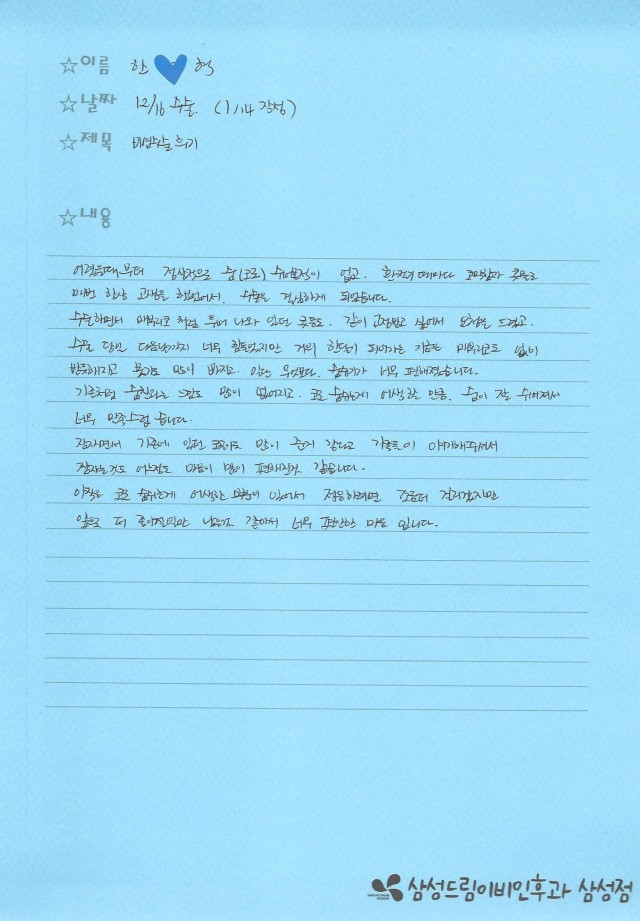 ☆이름 한 혁
☆날짜 12/16 수술. (1/14 작성)
☆제목 비염수술 후기
☆내용
어렸을때부터 정상적으로 숨(코로) 쉬어본적이 없고. 환절기 때마다 코막힘과 콧물로
매번 항상 고생을 했었어서. 수술을 결심하게 되었습니다.
수술하면서 매부리코처럼 튀어 나와 있던 콧등도. 같이 교정받고 싶어서 요청을 드렸고.
수술 당일 다음날까지 너무 힘들었지만 거의 한달이 되어가는 지금은 매부리코도 없이
반듯해지고 붓기도 많이 빠지고. 일단 무엇보다. 숨쉬기가 너무 편해졌습니다.
기존처럼 숨찬다는 느낌도 많이 없어지고. 코로 숨쉬는게 어색할 만큼. 숨이 잘 쉬어져서
너무 만족스럽습니다.
잠자면서 기존에 있던 코골이도 많이 준거 같다고 가족들이 얘기해주셔서
잠자는것도 어느정도 마음이 많이 편해진거 같습니다.
아직은 코로 숨쉬는게 어색한 부분이 있어서 적응하려면 조금더 걸리겠지만
앞으로 더 좋아질일만 남은거 같아서 너무 편안한 마음 입니다.
삼성드림이비인후과 삼성점